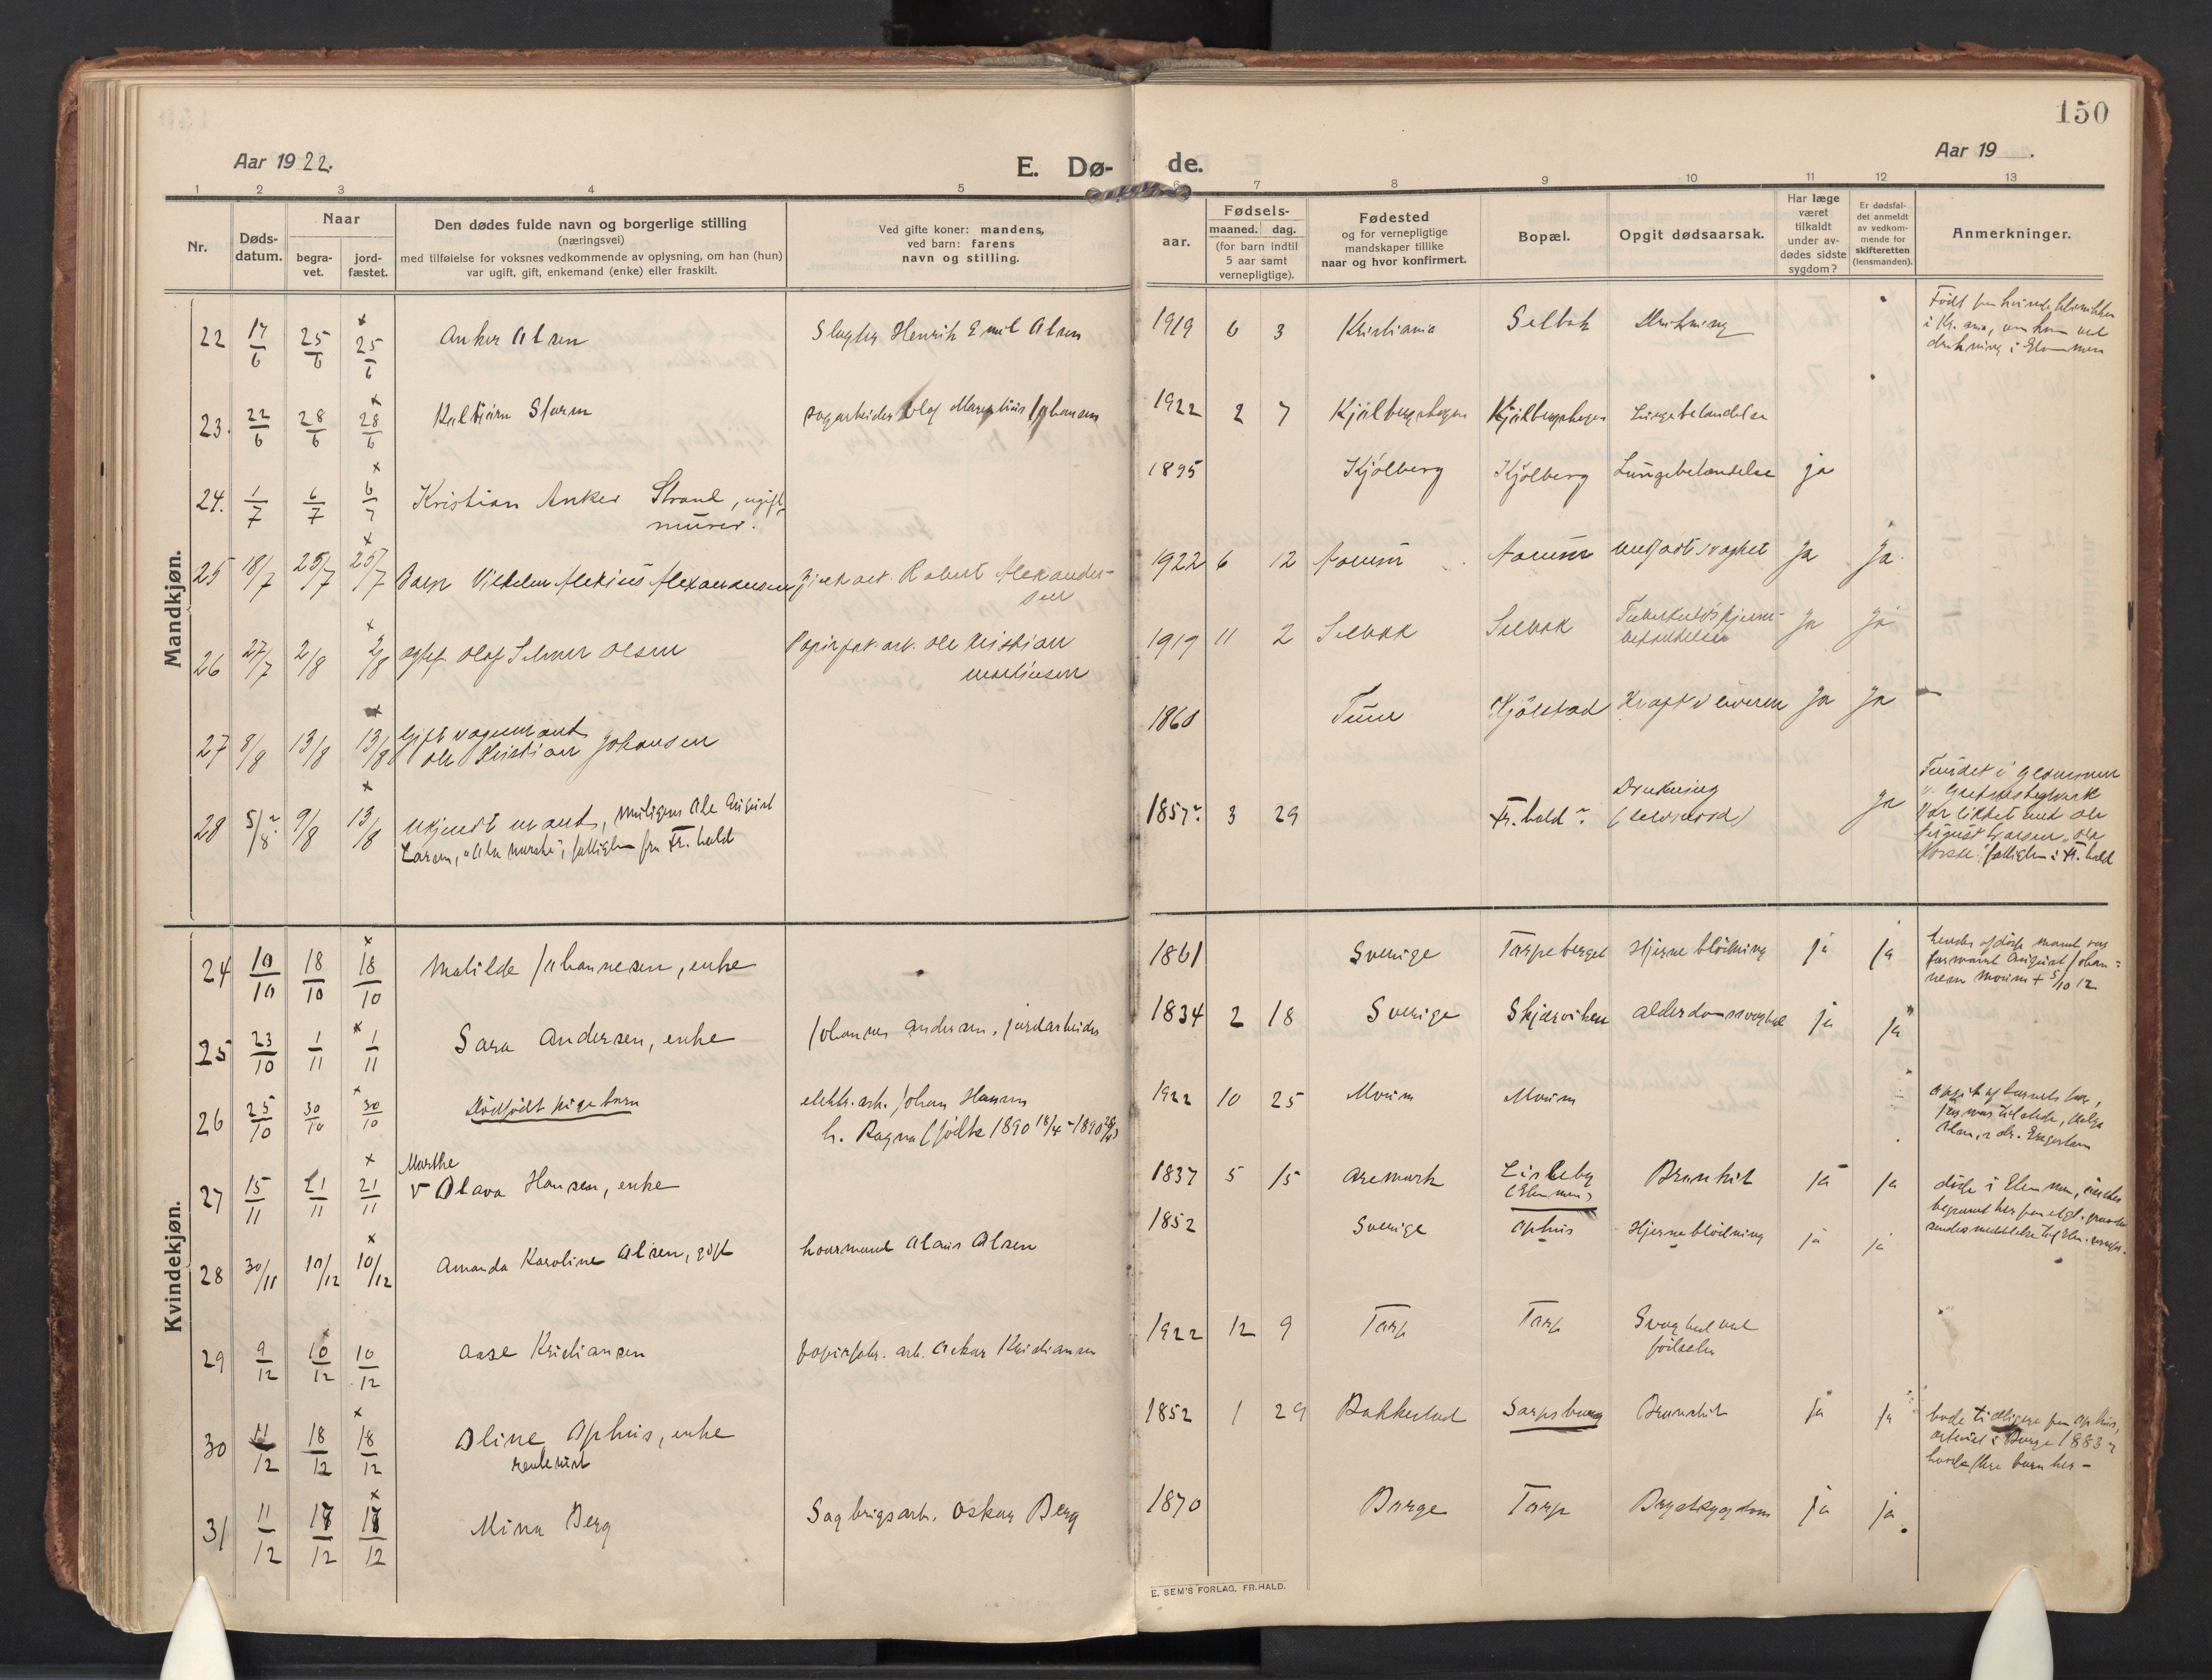 150
Aar 1922.
E. Dø-
de.
Aar 19 .
1 2 3 4 5 6 7 8 9 10 11 12 13
Nr.
Døds-
datum.
Naar
begra-
vet.
jord-
fæstet.
Den dødes fulde navn og borgerlige stilling
(næringsvei)
med tilføielse for voksnes vedkommende av oplysning, om han (hun)
var ugift, gift, enkemand (enke) eller fraskilt.
Ved gifte koner: mandens,
ved barn: farens
navn og stilling.
aar.
Fødsels-
maaned. dag.
(for barn indtil
5 aar samt
vernepligtige).
Fødested
og for vernepligtige
mandskaper tillike
naar og hvor konfirmert.
Bopæl.
Opgit dødsaarsak.
Har læge
været
tilkaldt
under av-
dødes sidste
sygdom?
Er dødsfal-
det anmeldt
av vedkom-
mende for
skifteretten
(lensmanden).
Anmerkninger.
Mandkjøn.
22 17/6 25/6 x 25/6 Anker Olsen Slagter Henrik Emil Olsen 1919 6 3 Kristiania Selbak Drukning
Født paa kvindeklinikken
i Kr.ania, omkom ved
drukning i Glommen
23. 22/6 28/6 x 28/6 Kolbjørn Storm sagarbeider Olaf Johansen 1922 2 7 Kjølbergskogen Kjølbergskogen Lungebetændelse
24. 1/7 6/7 x 6/7 Kristian Anker Strand, ugift
murer.
1895 Kjølberg Kjølberg Lungebetændelse ja
25 18/7 25/7 x 25/7 Barn Vilhelm Alexandersen Robert Alexander-
sen
1922 6 12 Moum Moum Medfødt svaghet Ja Ja.
26 27/7 2/8 x 2/8 Olaf Selmer Olsen Papirfab.arb. Ole Kristian
Martinsen
1919 11 2 Selbak Selbak
Ja Ja
27 8/8 13/8 x 13/8 Gift vognmand
Ole Kristian Johansen
1860 Tune Kjølstad Kræft i leveren Ja Ja
28 5/8? 9/8 x 13/8 Ukjendt mand, muligens Ole August
Larsen, "Ola norske", fattiglem fra Fr.hald
1857? 3 29 Fr.hald? Drukning
(selvmord)
Ja
Fundet i Glommen
Var liktet med Ole
August Larsen, "Ola
Norske", fattiglem i Fr.hald
Kvindekjøn.
24 10/10 18/10 x 18/10 Matilde Johannesen, enke 1861 Sverige Torpeberget Hjerneblødning ja ja
hendes afdøde mand var
formand August Johan-
nesen Moum + 5/10 12
25 23/10 1/11 x 1/11 Sara Andersen, enke Johannes Andersen, jordarbeider 1834 2 18 Sverige Skjærviken alderdomssvaghed ja ja
26 25/10 30/10 x 30/10 Dødfødt pigebarn elektr.arb. Johan Hansen
h. Ragna (fødte 1890 18/4 - 1890
1922 10 25 Moum Moum
27 15/11 21/11 x 21/11 Marthe
v Olava Hansen, enke
1837 5 15 Aremark Lisleby
(Glemmen)
Bronkit ja ja
døde i Glemmen,
28 30/11 10/12 x 10/12 Amanda Karoline Olsen, gift Olaus Olsen 1852 Sverige Ophus Hjerneblødning ja ja
29 9/12 x 10/12 10/12 Aase Kristiansen papirfabr. arb. Oskar Kristiansen 1922 12 9 Torp Torp Svaghed ved
fødselen
30 11/12 18/12 x 18/12 Oline Ophus, enke
rentenist
1852 1 29 Bakkestad Sarpsborg Bronkit ja ja
bode tidligere paa Ophus,
i Borge 1883
31 11/12 18/12 x 18/12 Mina Berg Sagbrugsarb. Oskar Berg 1870 Borge Torp Brystsygdom ja ja.
E. SEM'S FORLAG, FR.HALD.